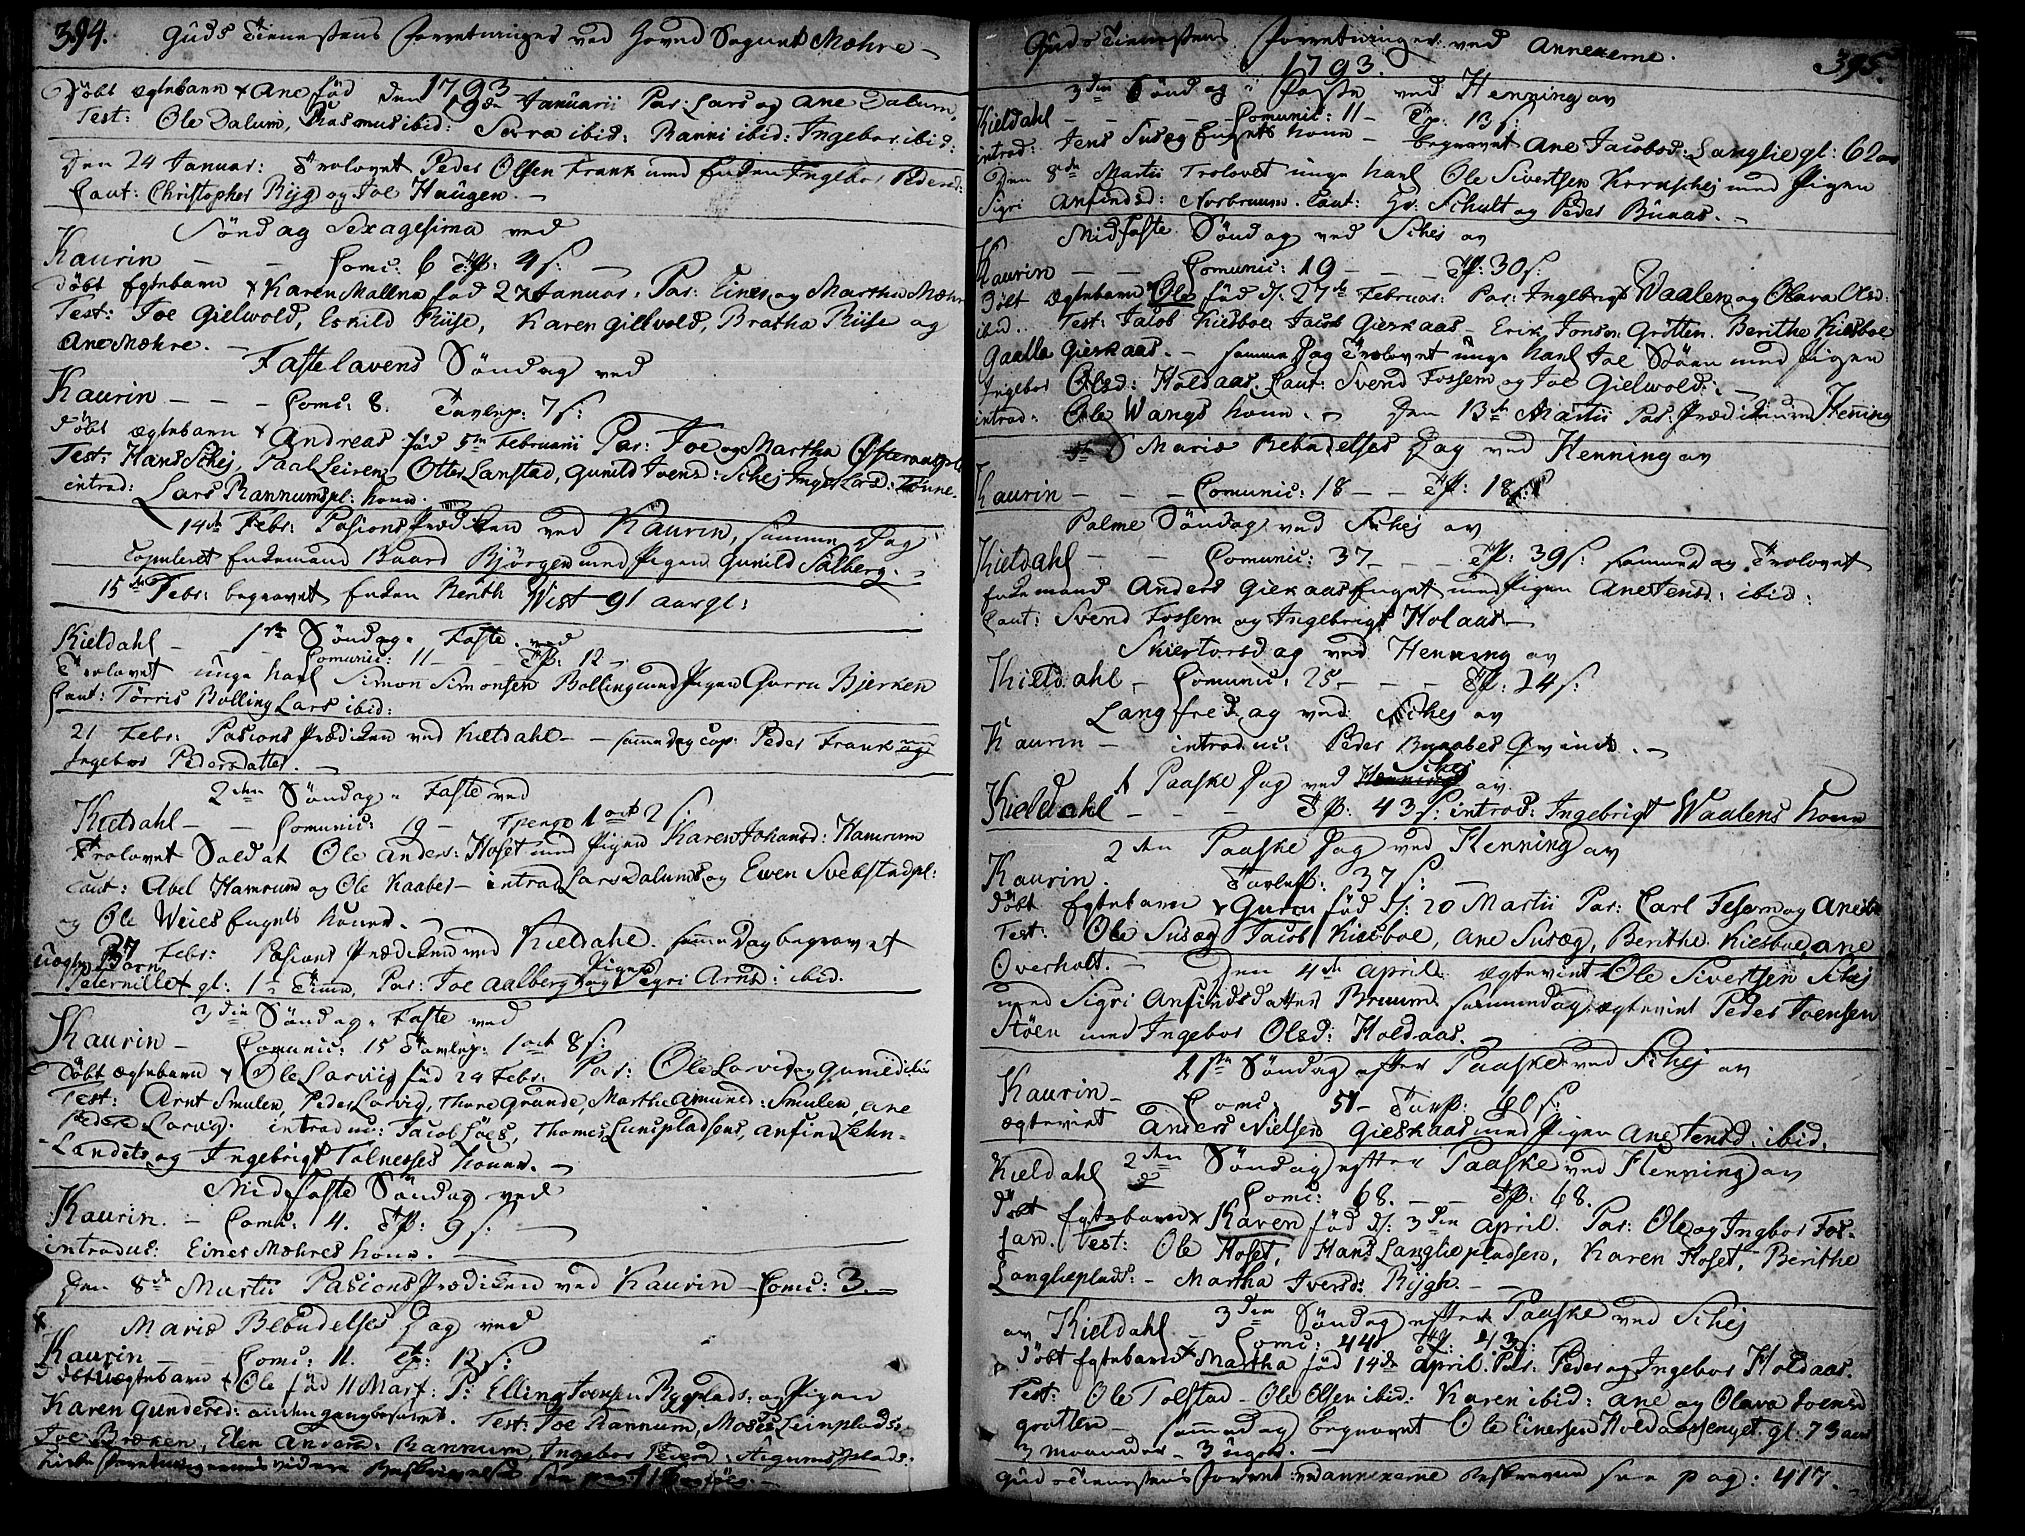 394. Guds Tienestens Forretninger ved Hoved Sognet Mæhre
1793
Döbt ægtebarn + Ane föd den 19de Januarii Par: Lars og Ane Dalum,
Test: Ole Dalum, Rasmus ibid: ibid: Ranni ibid: Ingebor ibid:
Den 24 Januar: Trolovet Peder Olsen Frank med Enken Ingebor Pedersd:
Caut: Christopher Ryg og Joe Haugen.
Söndag Sexagesima ved
Kaurin - - Comc: 6 Tp: 4 s:
Döbt Egtebarn + Karen Mallena föd 27 Januar. Par: Einer og Martha Mæhre
Test: Joe Gielwold, Eskild Riise, Karen Gillvold, Bratha Riise og
Ane Mæhre.
Fastelavens Söndag ved
Kaurin - - - Comc: 8. Tavlep: 7 s:
Döbt ægtebarn + Andreas föd 5te Februarii Par: Joe og Martha
Test: Hans Schej, Paal Leiren, Otter Lanstad, Gunild Joensd: Schej Inger Larsd:
introd: Lars Rannumspl: kone.
14de Febr: Pasions Prædiken ved Kaurin, samme Dag
Copuleret Enkemand Baard Björgen med Pigen Gunild Salberg.
15de Febr: begravet Enken Berith Wist 91 aar gl:
Kieldahl - 1ste Söndag i Faste ved
Comunic: 11 - - Tp: 12
Trolovet unge karl Simon Simonsen Bolling med Pigen Gurru Bjerken
Caut: Torris Bolling Lars ibid:
21 Febr: Pasions Prædiken ved Kieldahl - - samme Dag cop: Peder Frank med
Ingebor Pedersdatter.
2den Söndag i Faste ved
Kieldahl - - Comunic: 19 - Tpenge 1 ort 2 s
Trolovet Soldat Ole Anders: Hoset med Pigen Karen Johansd: Hamrum
Caut: Abel Hamrum og Ole Kaaber - introd Lars Dalums og Ewen Svebstadpl:
og Ole Weies Engets koner.
27 Febr: Pasions Prædiken ved Kieldahl. samme Dag begravet
uægte Barn Pernille + gl: 1 Time, Par: Joe Aalberg og Pigen Sigri Arnts: ibid.
3die Söndag i Faste ved
Kaurin - Comunic: 15 Tavlep: 1 ort 8 s:
Döbt ægtebarn + Ole Lorvig föd 24 Febr. Par: Ole Lorvig og Gunild ibid
Test: Arnt Smulen, Peder Lorvig, Thore Grande, Martha Amund: Smulen, Ane
Peders Lorvig. introduc: Jacob Löes, Thomes Lunspladsens, Anfind Lehn-
Landets og Ingebrigt Tolnesses koner.
Midfaste Söndag ved
Kaurin. - Comc: 4. Tp: 9 s:
introduc: Einer Mæhres kone.
Den 8de Martii Pasions Prædiken ved Kaurin - Comc: 3.
Mariæ Bebudelses Dag ved
Kaurin - - Comc: 11. Tp: 12 s:
Döbt uægtebarn + Ole föd 11 Mart: P: Elling Joensen plads: og Pigen
Karen Gundersd: anden gang besovet. Test: Joe Rannum, Moses Leinplads,
Joe Bræken, Elen Rannum, Ingebor Pedersd:
videre Beskrivelse see pag:
Guds Tienestens Forretninger ved Annexerne. 395.
1793.
3die Söndag i Faste ved Henning av
Kieldahl - - - - Comunic: 11 - Tp: 13 s:
introd: Jens Susæg Engets kone - begravet Ane Jacobsd: Langlie gl: 62 aar
Den 8de Martii Trolovet unge karl Ole Sivertsen Kornschej med Pigen
Sigri Anfindsd: Norbruum. Caut: Hr: Schult og Peder Buaas.
Midfaste Söndag ved Schej av
Kaurin - - - Comunic: 19 - - - Tp: 30 s:
Döbt ægtebarn + Ole föd d: 27de Februar: Par: Ingebrigt Waalen og Olava Olsd:
ibid. Test: Jacob Kiesboe Jacob Gieskaas - Erik Jonsen Grötten. Berithe Kiesboe
Gaalle Gieskaas. - samme Dag Trolovet unge karl Joe Stöen med Pigen
Ingebor Olsd: Holdaas, Caut: Svend Fossem og Joe Gielwold:
introd: Ole Wangs kone. - Den 13de Martii Pas: Prædiken ved Hening
Mariæ Bebudelses Dag ved Henning av
Kaurin - - - Comunic: 18 - - Tp: 18 s:
Palme Söndag ved Schej av
Kieldahl - - Comunic: 37 - - - Tp: 39 s: samme dag Trolovet
Enkemand Anders Gieskaas Enget med Pigen Ane Jensd. ibid:
Caut: Svend Fossem og Ingebrigt Holaas
Skiertorsdag ved Henning av
Kieldahl - Comunic: 25 - - - Tp: 24 s:
Langfredag ved Schej av
Kaurin - introduc: Peder Quinde.
1 Paaske Dag ved Schej av
Kieldahl - - - - Tp: 43 s: introd: Ingebrigt Waalens kone
2den Paaske Dag ved Henning av
Kaurin. Tavlep: 37 s:
Döbt Egtebarn + Guru föd d: 20 Martii Par: Carl Fesem og Ane ibid
Test: Ole Susæg Jacob Kiesboe, Ane Susæg, Berithe Kiesboe, Ane
Overholt. - Den 4de April ægteviet Ole Sivertsen Schej
med Sigri Anfindsdatter Bruum. samme dag ægteviet Peder Joensen
Stöen med Ingebor Olsd: Holdaas.
1ste Söndag efter Paaske ved Schej av
Kaurin - Comc: 51 - Tavp: 60 s:
ægteviet Anders Nielsen Gieskaas med Pigen Ane Jensd: ibid.
Kieldahl 2den Söndag efter Paaske ved Henning av
Comc: 68. - - Tp: 68.
Döbt Egtebarn + Karen föd d: 3die April. Par: Ole og Ingbor Fos-
san. Test: Ole Hoset, Hans Langliepladsen, Karen Hoset, Berithe
Langlieplads: - Martha Iversd: Rijgh.
3die Söndag efter Paaske ved Schej
av Kieldahl - Comc: 44. Tp: 43 s:
Döbt Egtebarn + Martha föd 14de April. Par: Peder og Ingebor Holdaas.
Test: Ole Tolstad - Ole Olsen ibid: Karen ibid: Ane og Olava Joensd
Grötten - samme dag begravet Ole Einersen Holdaasenget. gl: 73 aar
3 maaneder - 3 uger.
Guds Tienestens Forret: ved Annexerne Beskreven see pag: 417.